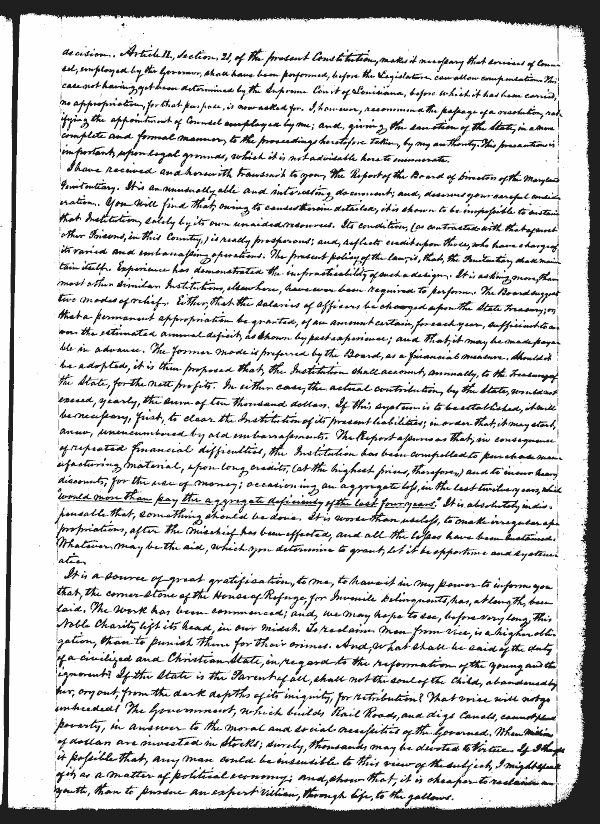 decision. Article II, Section 21, of the present Constitution, makes it necessary that services of Coun-
sel, employed by the Governor, shall have been performed, before the Legislature can allow compensation. This
case not having yet been determined by the Supreme Court of Louisiana, before which it has been carried,
no appropriation, for that purpose, is now asked for. I, however, recommend the passage of a resolution, rat-
ifying the appointment of Counsel employed by me; and, giving the sanction of the State, in a more
complete and formal manner, to the proceedings heretofore taken, by my authority. This precaution is
important, upon legal grounds, which it is not advisable here to enumerate.
I have received and herewith transmit to you, the Report of the Board of Directors of the Maryland
Penitentiary. It is an unusually able and interesting document; and, deserves your careful consid-
eration. You will find that, owing to causes therein detailed, it is shown to be impossible to sustain
that Institution, solely by its own unaided resources. Its condition, (as contrasted with that of most
other Prisons, in this Country,) is really prosperous; and, reflects credit upon those, who have charge of
its varied and embarrassing operations. The present policy of the law, is, that, the Penitentiary shall main-
tain itself. Experience has demonstrated the impracticability of such a design. It is asking more, than
most other similar Institutions, elsewhere, have ever been required to perform. The Board suggest
two modes of relief. Either, that the salaries of officers be charged upon the State Treasury; or,
that a permanent appropriation be granted, of an amount certain, for each year, sufficient to cov-
er the estimated annual deficit, as shown by past experience; and that, it may be made paya-
ble in advance. The former mode is preferred by the Board, as a financial measure. Should it
be adopted, it is then proposed that, the Institution shall account, annually, to the Treasury of
the State, for the nett profits. In either case, the actual contribution, by the State, would not
exceed, yearly, the sum of ten thousand dollars. If this system is to be established, it will
be necessary, first, to clear the Institution of its present liabilities; in order that, it may start,
anew, unencumbered by old embarrassments. The Report assures us that, in consequence
of repeated financial difficulties, the Institution has been compelled to purchase man-
ufacturing material, upon long credits, (at the highest prices, therefore,) and to incur heavy
discounts, for the use of money; occasioning an aggregate loss, in the last twelve years, which
"would more than pay the aggregate deficiency of the last four years." It is absolutely indis-
pensable that, something should be done. It is worse than useless, to make irregular ap-
propriations, after the mischief has been effected, and all the losses have been sustained.
Whatever may be the aid, which you determine to grant, let it be opportune and system-
atic.
It is a source of great gratification, to me, to have it in my power to inform you
that, the corner stone of the House of Refuge, for Juvenile Delinquents, has, at length, been
laid. The work has been commenced; and, we may hope to see, before very long, this
Noble Charity lift its head, in our midst. To reclaim men from vice, is a higher obli-
gation, than to punish them for their crimes. And, what shall be said of the duty
of a civilized and Christian State, in regard to the reformation of the young and the
ignorant? If the State is the Parent of all, shall not the soul of the Child, abandoned by
her, cry out, from the dark depths of its iniquity, for retribution? That voice will not go
unheeded! The Government, which builds Rail Roads, and digs Canals, cannot plead
poverty, in answer to the moral and social necessities of the Governed. When millions
of dollars are invested in Stocks; surely, thousands may be devoted to Virtue. If I thought
it possible that, any man could be insensible to this view of the subject, I might speak
of it, as a matter of political economy; and, show that, it is cheaper to reclaim a
youth, than to pursue an expert villian, through life, to the gallows.